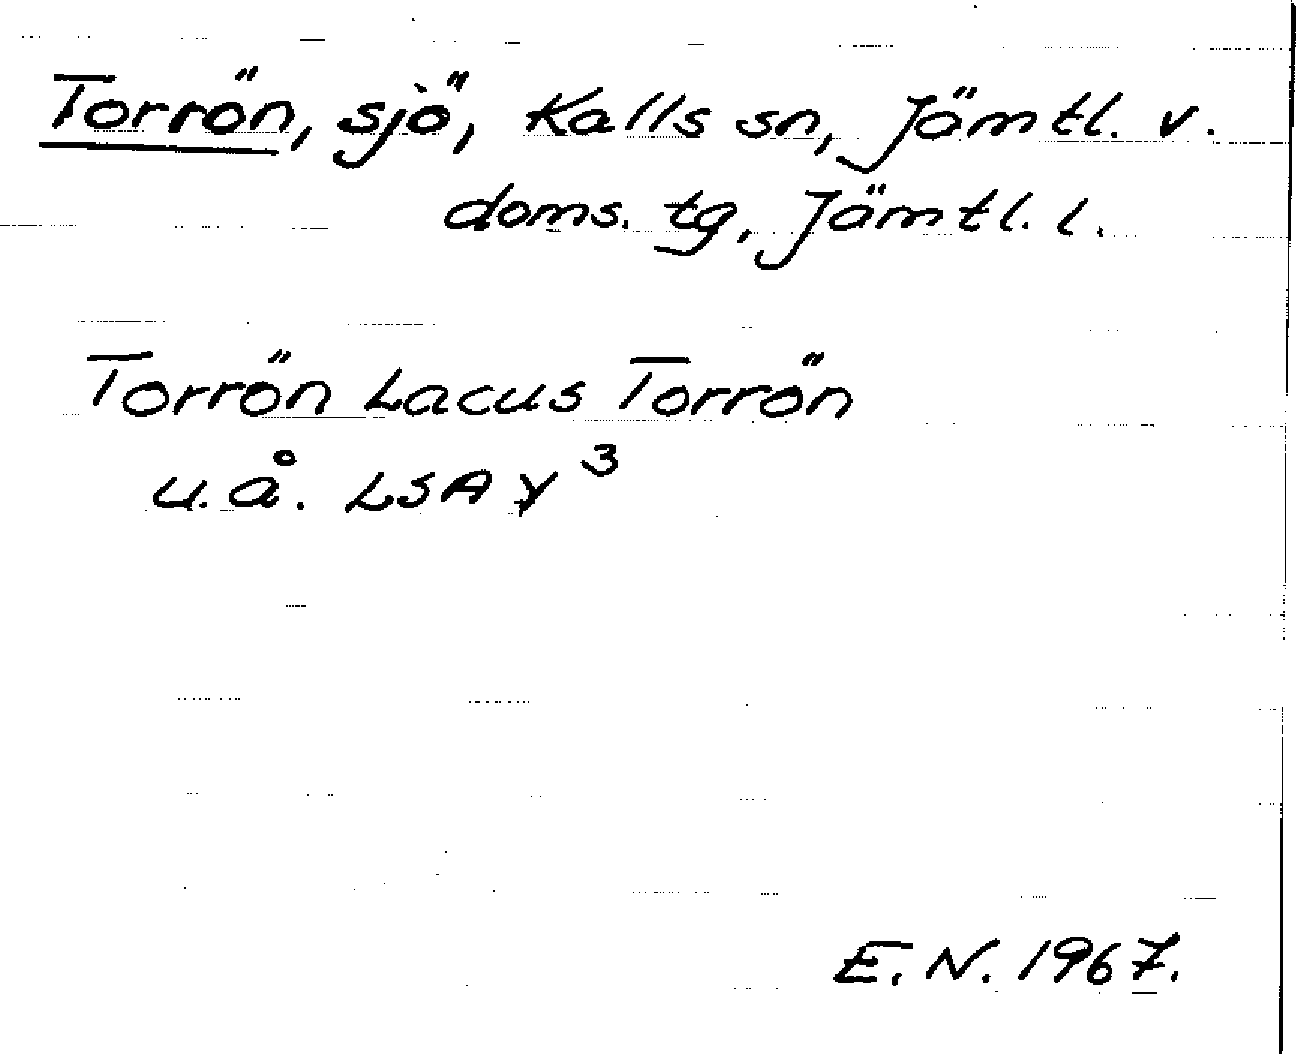 Torrön, sjö, Kalls sn, Jämtl. v.
doms. tg, Jämtl. l.
Torrön Lacus Torrön
u.å. LSA Y³
E. N. 1967.